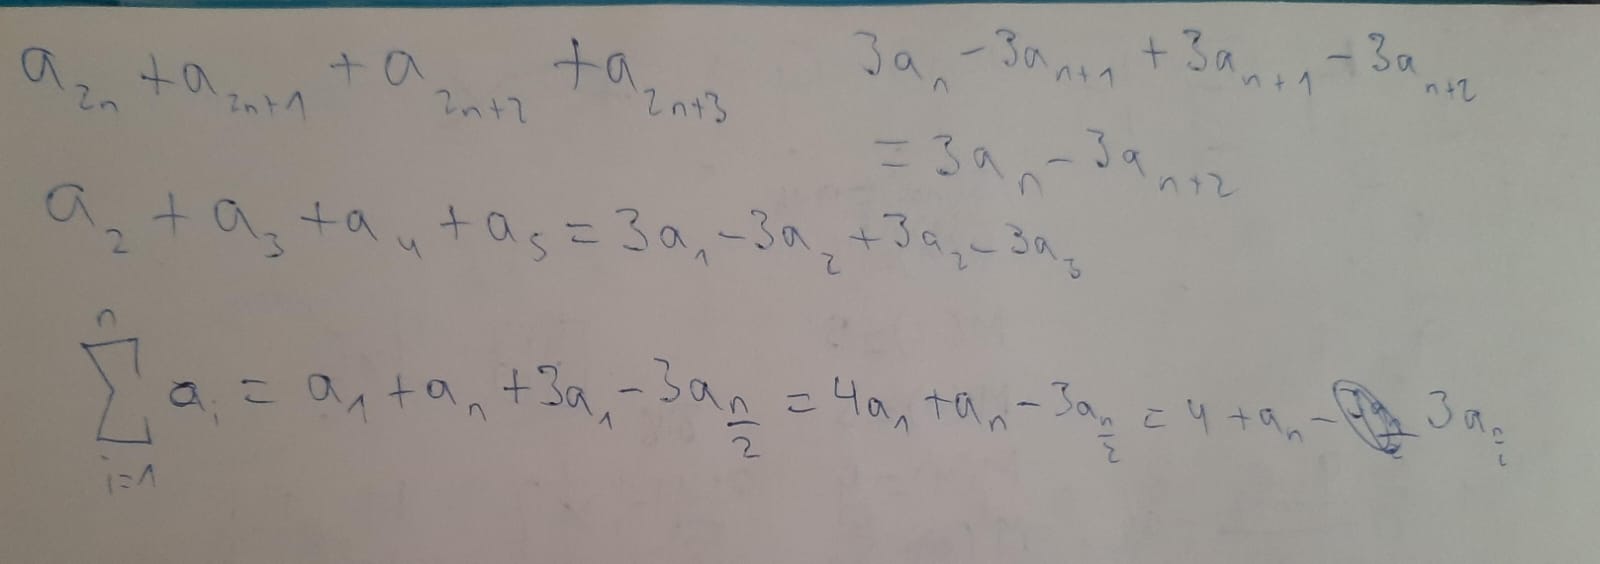 a_{2n} + a_{2n+1} + a_{2n+2} + a_{2n+3}
3a_n - 3a_{n+1} + 3a_{n+1} - 3a_{n+2}
= 3a_n - 3a_{n+2}
a_2 + a_3 + a_4 + a_5 = 3a_1 - 3a_2 + 3a_2 - 3a_3
\sum_{i=1}^{n} a_i = a_1 + a_n + 3a_1 - 3a_{\frac{n}{2}} = 4a_1 + a_n - 3a_{\frac{n}{2}} = 4 + a_n - 3a_{\frac{n}{2}}